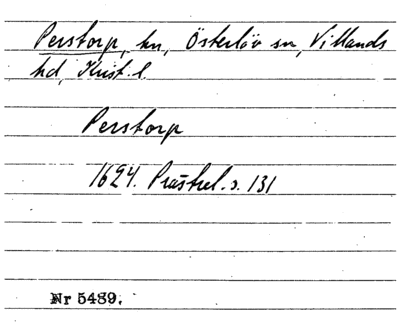 Perstorp, hn, Österlöv sn, Villands
hd, Krist. l.
Perstorp
1624. Prästrel. s. 131
Nr 5489.